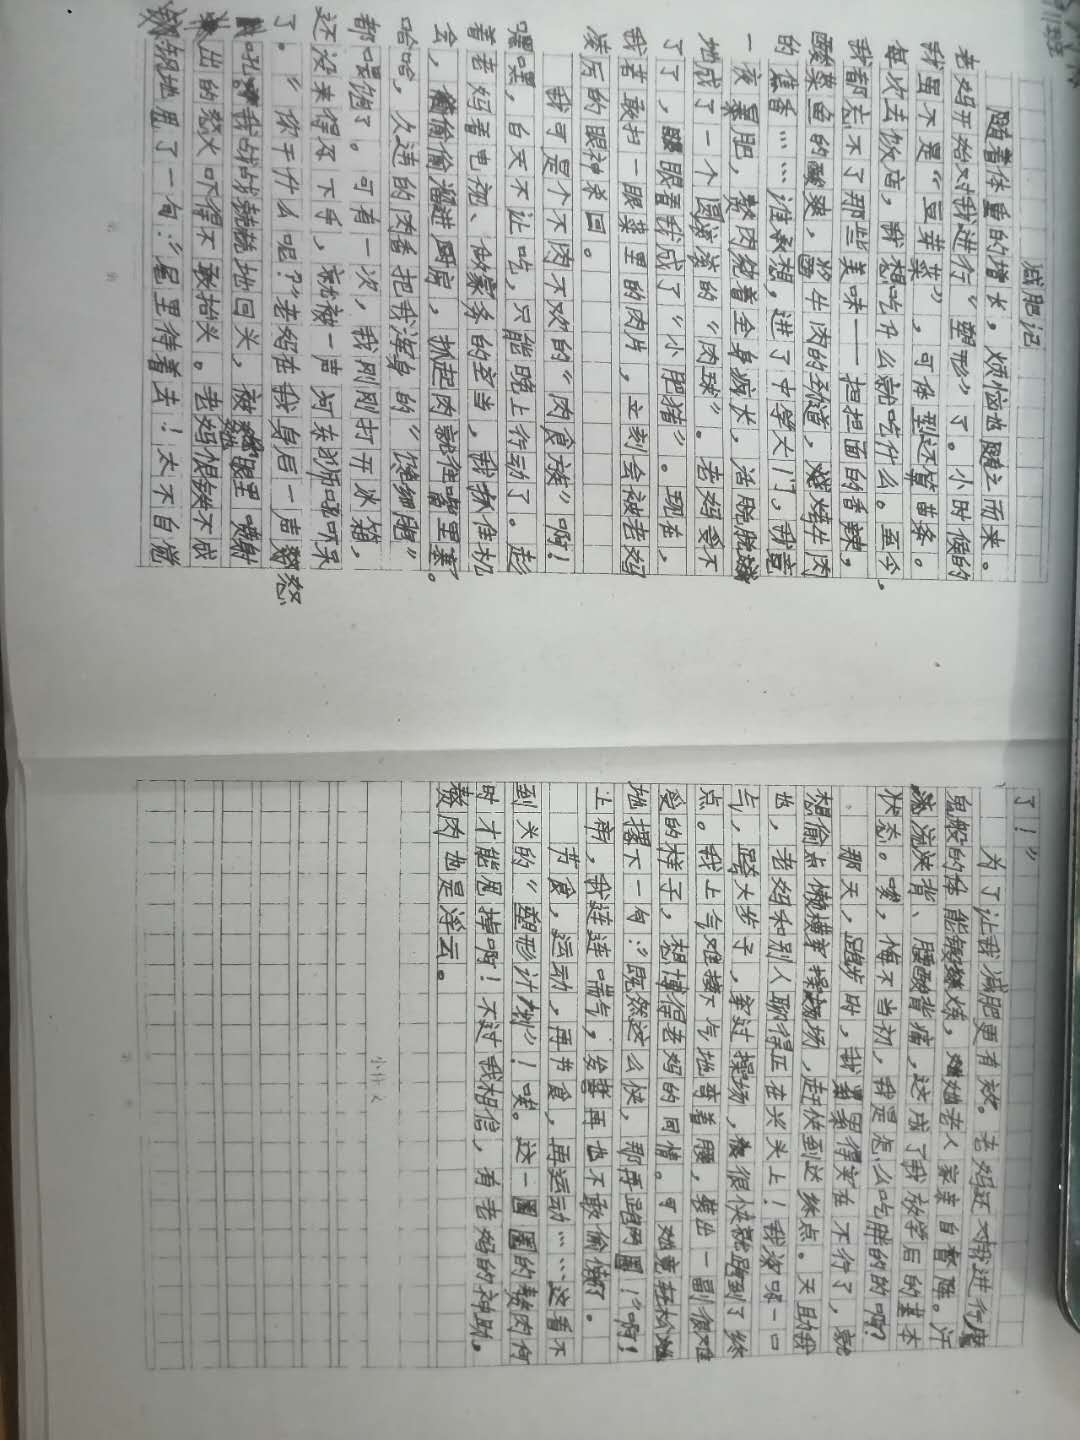 减肥记
随着体重的增长，烦恼也随之而来。
老妈开始对我进行“塑形”了。小时候的
我虽不是“豆芽菜”，可体型还算苗条。
每次去饭店，我想吃什么就吃什么。至今，
我都忘不了那些美味——担担面的香辣，
酸菜鱼的酸爽，将牛肉的劲道，烤牛肉
的焦香……谁承想，进了中学大门，我竟
一夜暴肥，赘肉绕着全身疯长，活脱脱
地成了一个圆滚滚的“肉球”。老妈受不
了了，眼看着我成了“小肥猪”。现在，
我若敢扫一眼菜里的肉片，立刻会被老妈
凌厉的眼神杀回。
我可是个不肉不欢的“肉食族”啊！
嘿嘿，白天不让吃，只能晚上行动了。趁
着老妈看电视、做家务的空当，我抓准机
会，偷偷溜进厨房，抓起肉就使嘴里塞。
哈哈，久违的肉香把我浑身的“馋细胞”
都喂饱了。可有一次，我刚刚打开冰箱，
还没来得及下手，就被一声河东狮吼吓呆
了。“你干什么呢？”老妈在我身后一声怒
吼。我战战兢兢地回头，被她眼里喷射
出的怒火吓得不敢抬头。老妈恨铁不成
钢地甩了一句：“屋里待着去！太不自觉
了！”
为了让我减肥更有效。老妈还对我进行魔
鬼般的体能锻炼，她老人家亲自督阵。汗
流浃背、腰酸背痛，这成了我放学后的基本
状态。唉，悔不当初，我是怎么吃胖的的啊？
那天，跑步时，我累得实在不行了，就
想偷点懒横穿操场，赶快到达终点。天助我
也，老妈和别人聊得正在兴头上！我深呼一口
气，跨大步子，穿过操场，很快就跑到了终
点。我上气难接下气地弯着腰，装出一副很难
受的样子，想博得老妈的同情。可她竟轻松
地撂下一句：“既然这么快，那再跑两圈！”啊！
上帝，我连连喘气，发誓再也不敢偷懒了。
节食，运动，再节食，再运动……这看不
到头的“塑形计划”！唉。这一圈圈的赘肉何
时才能甩掉啊！不过我相信，有老妈的神助。
赘肉也是浮云。